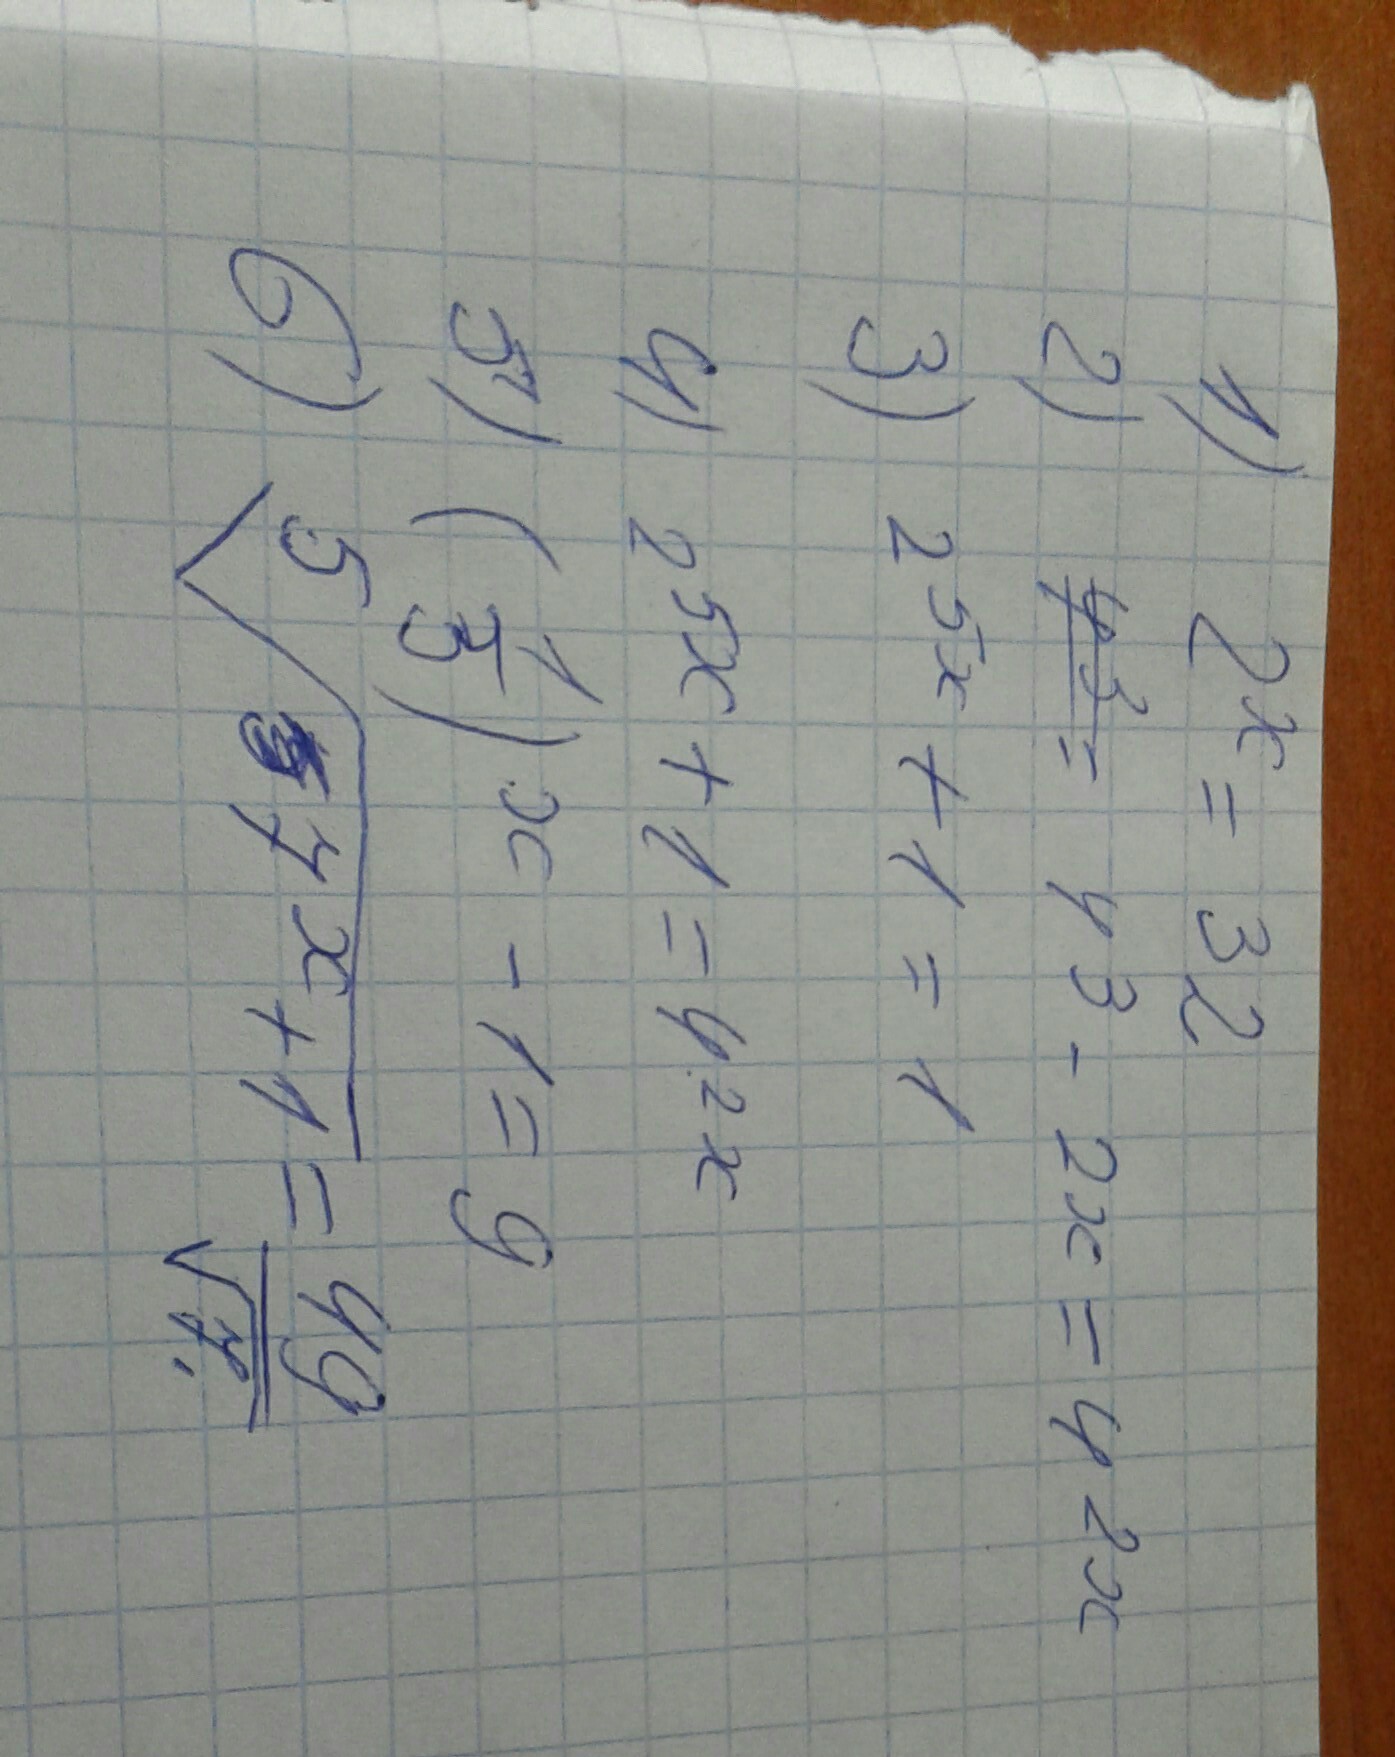 1) 2ˣ = 32
2) 4³ = 4³ - 2x = 4²ˣ
3) 2⁵ˣ + 1 = 1
4) 2⁵ˣ + 1 = 4²ˣ
5) (1/3)ˣ - 1 = 9
6) ⁵√7ˣ + 1 = 49/√7.